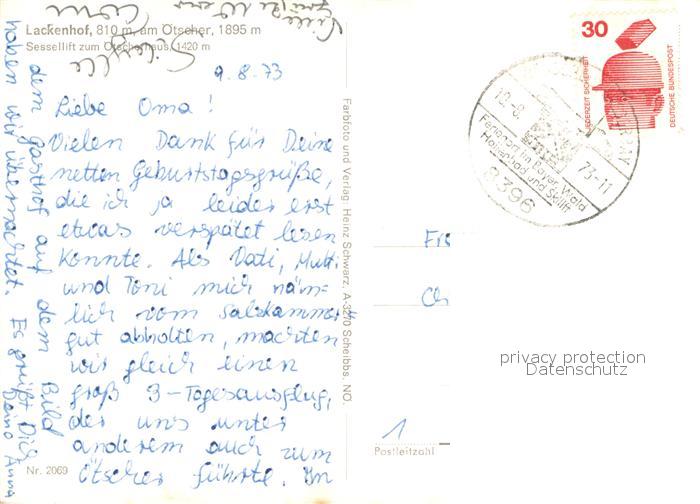 Lackenhof, 810 m, am Ötscher, 1895 m
Sessellift zum Ötscherhaus, 1420 m
9.8.73
Liebe Oma!
Vielen Dank für Deine
netten Geburtstagsgrüße,
die ich ja leider erst
etwas verspätet lesen
konnte. Als Vati, Mutti
und Toni mich näm-
lich vom Salzkammer-
gut abholten, machten
wir gleich einen
groß 3-Tagesausflug,
der uns unter
anderem auch zum
Ötscher führte. In
dem Gasthof auf dem Bild
haben wir übernachtet. Es grüßt Dich
Deine Anna
Viele
Sibylle
Nr. 2069
Farbfoto und Verlag: Heinz Schwarz, A-3270 Scheibbs, NÖ.
30
JEDERZEIT SICHERHEIT
DEUTSCHE BUNDESPOST
10.-8.
73-11
Ferienort im Bayer. Wald
Hallenbad und Skilift
8396
Fr
1
Postleitzahl
privacy protection
Datenschutz